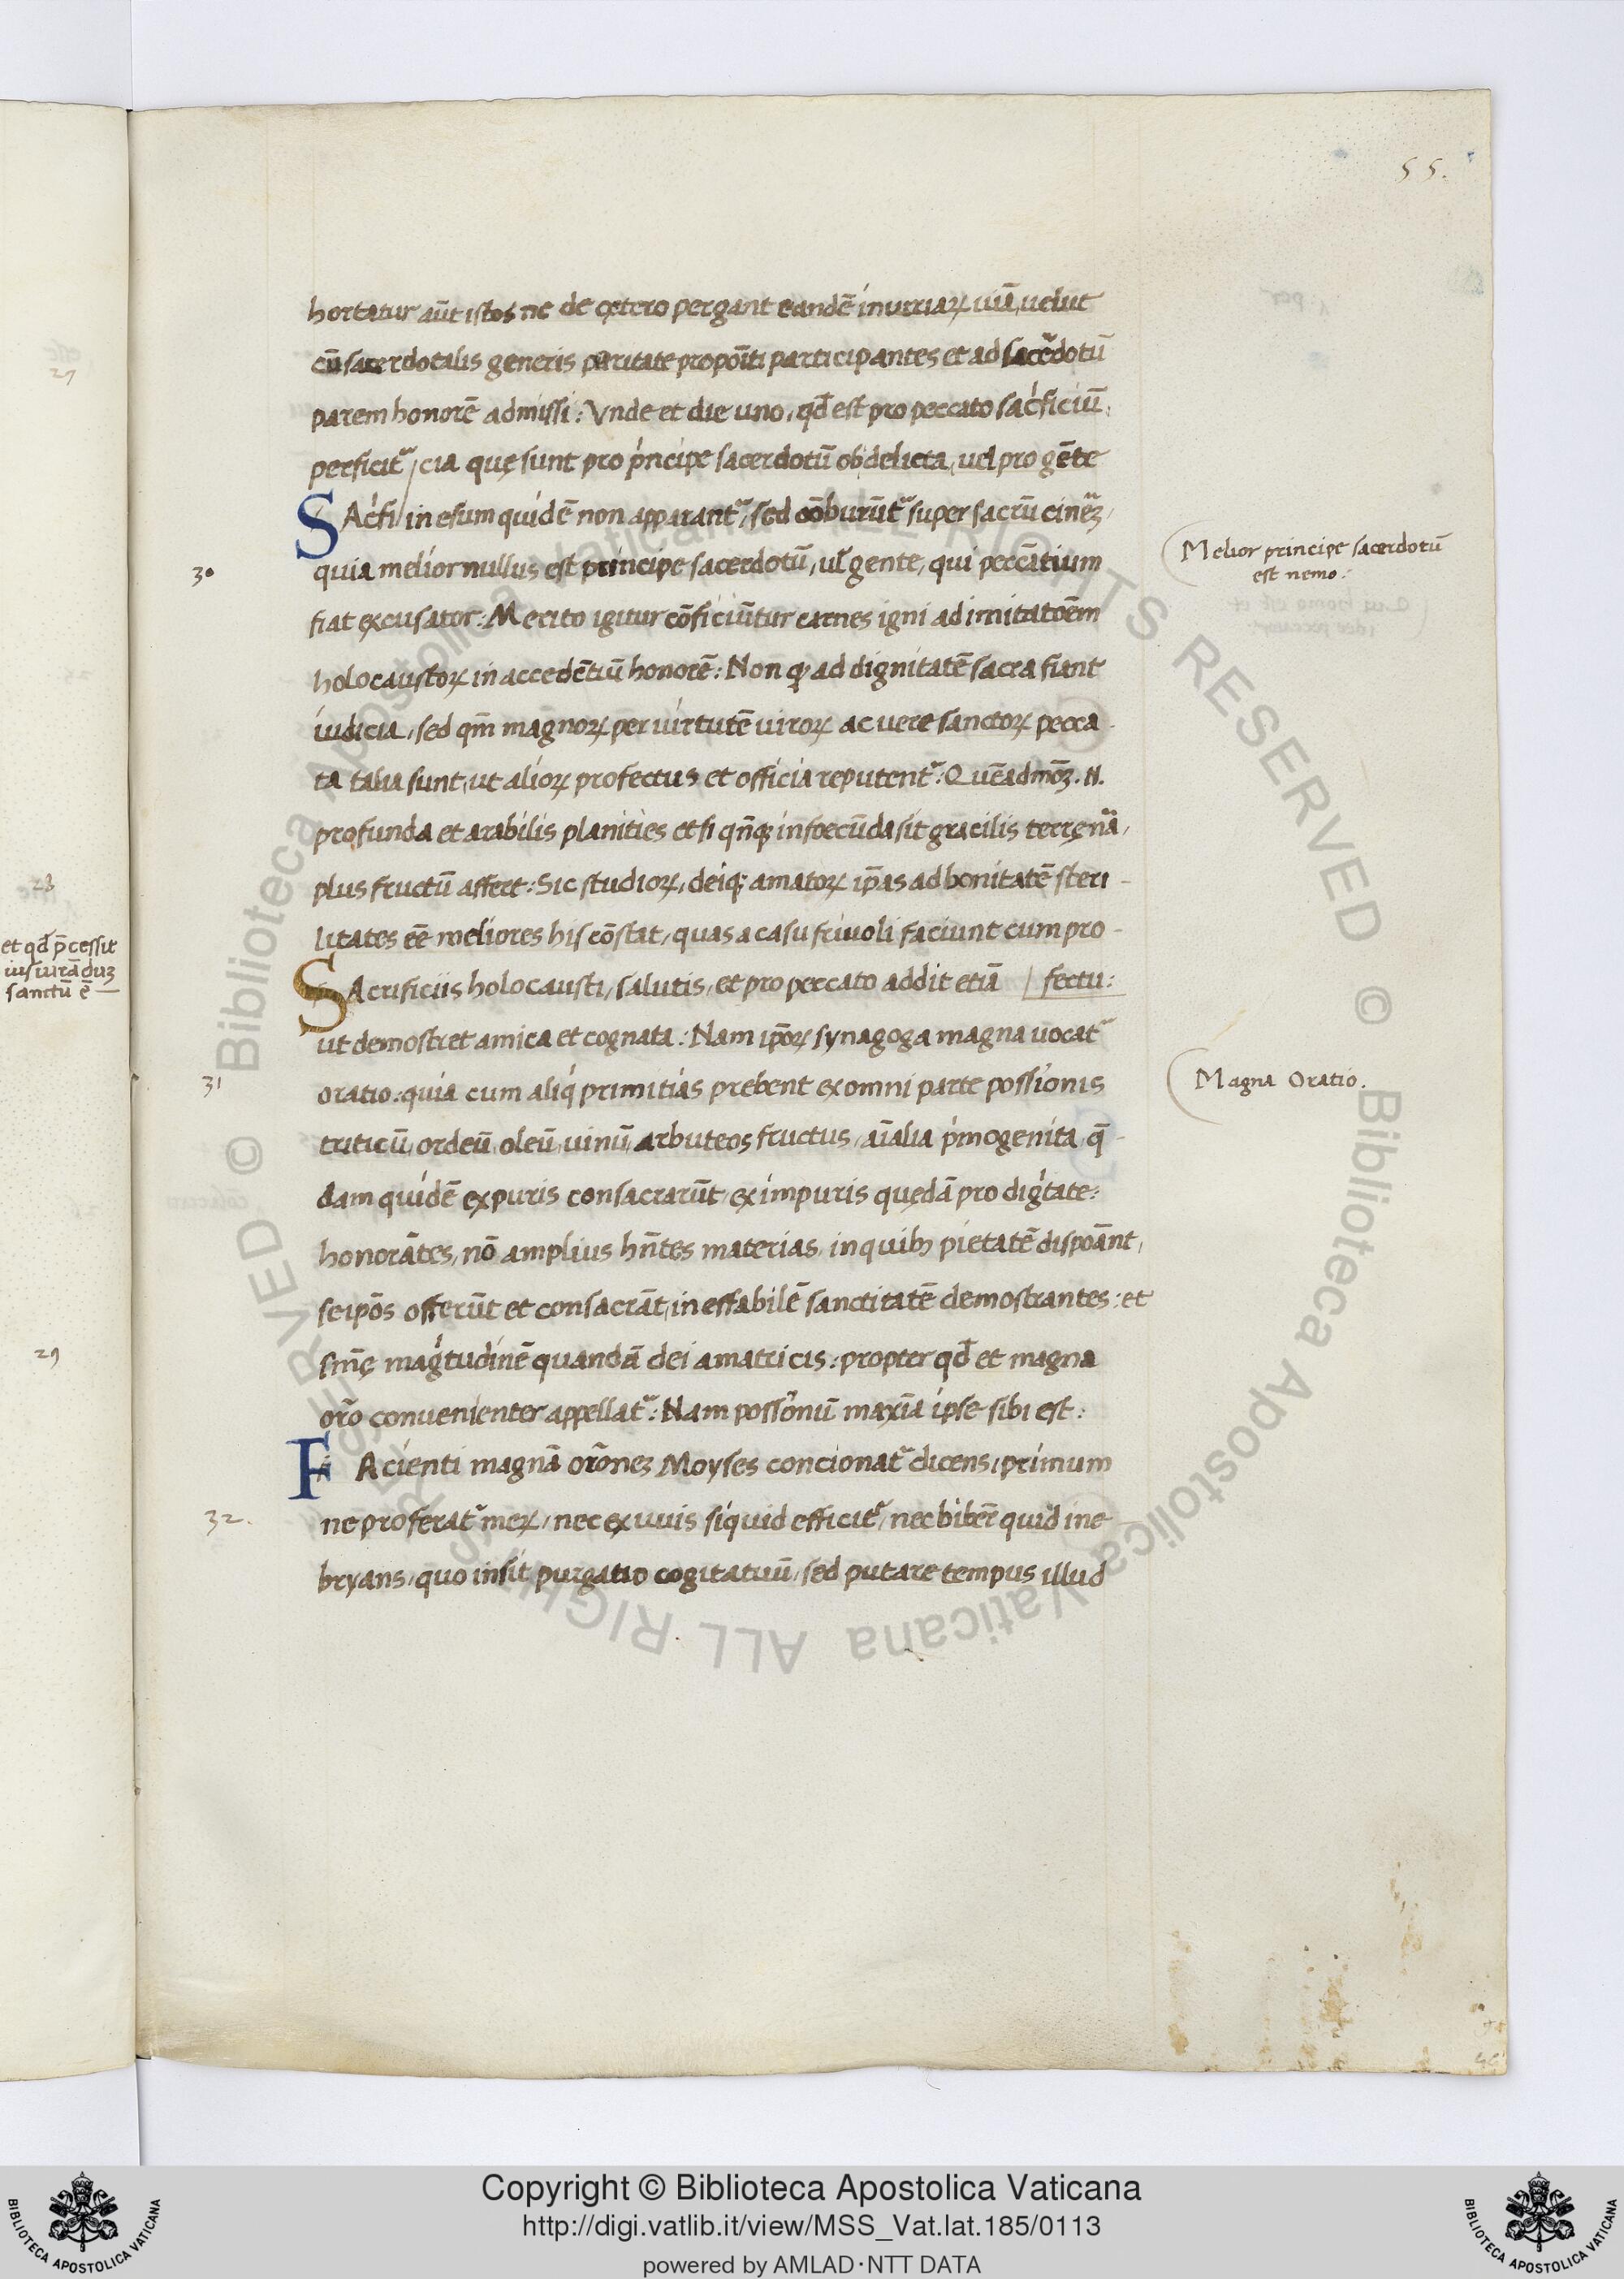 55.
hortatur aūt istos ne de cętero pergant eandē iniuriaꝝ uiā, uelut
cū sacerdotalis generis paritate propoīti participantes et ad sacerdotū
parem honorē admissi: Vnde et die uno, qđ est pro peccato sac̓ficiū,
perficit᷑ / cia quę sunt pro p̓ncipe sacerdotū ob delicta, uel pro gēte
SAc̓fi / in esum quidē non apparant᷑, sed cōburūt᷑ super sacrū cinerē,
30 quia melior nullus est principe sacerdotū, ul̓ gente, qui peccātium
fiat excusator: Merito igitur cōficiūtur carnes igni ad imitatoēm
holocaustoꝝ in accedētiū honorē: Non ꝙ ad dignitatē sacra fiant
iudicia, sed qm̄ magnoꝝ per uirtutē uiroꝝ ac uere sanctoꝝ pecca
ta talia sunt, ut alioꝝ profectus et officia reputent᷑: Quēadmōȝ .N.
profunda et arabilis planities etsi qn̄qꝫ infoecūda sit gracilis terręnā,
plus fructū affert: Sic studioꝝ, deiqꝫ amatoꝝ ip̄as ad bonitatē steri-
litates eē meliores his cōstat, quas a casu friuoli faciunt cum pro-
SAcrificiis holocausti, salutis, et pro peccato addit etiā / fectu:
ut demostret amica et cognata: Nam ip̄oꝝ synagoga magna uocat᷑
31 oratio: quia cum aliq̓ primitias prebent ex omni parte possionis
triticū, ordeū, oleū, uinū, arbuteos fructus, aīalia p̓mogenita, q̄-
dam quidē ex puris consacrarūt, ex impuris quędā pro dig̓tate:
honorātes, nō amplius hn̄tes materias, in quibꝫ pietatē dispoānt,
seipōs offerūt et consacrāt, ineffabilē sanctitatē demostrantes: et
sm̄ę mag̓tudinē quandā dei amatricis: propter qđ et magna
oro̅ conuenienter appellat᷑: Nam possionū maxīa ipse sibi est:
FAcienti magnā oro̅neȝ Moyses concionat᷑ dicens, primum
32. ne proferat᷑ meꝝ, nec ex uuis siquid efficit᷑, nec bibere quid ine-
bryans, quo insit purgatio cogitatuū, sed putare tempus illud
Melior principe sacerdotū
est nemo:
Magna Oratio.
28
et qđ p̄cessit
iusiurādūȝ
sanctū ē
29
Copyright © Biblioteca Apostolica Vaticana
http://digi.vatlib.it/view/MSS_Vat.lat.185/0113
powered by AMLAD·NTT DATA
© Biblioteca Apostolica Vaticana ALL RIGHTS RESERVED
© Biblioteca Apostolica Vaticana ALL RIGHTS RESERVED
BIBLIOTECA APOSTOLICA VATICANA
BIBLIOTECA APOSTOLICA VATICANA